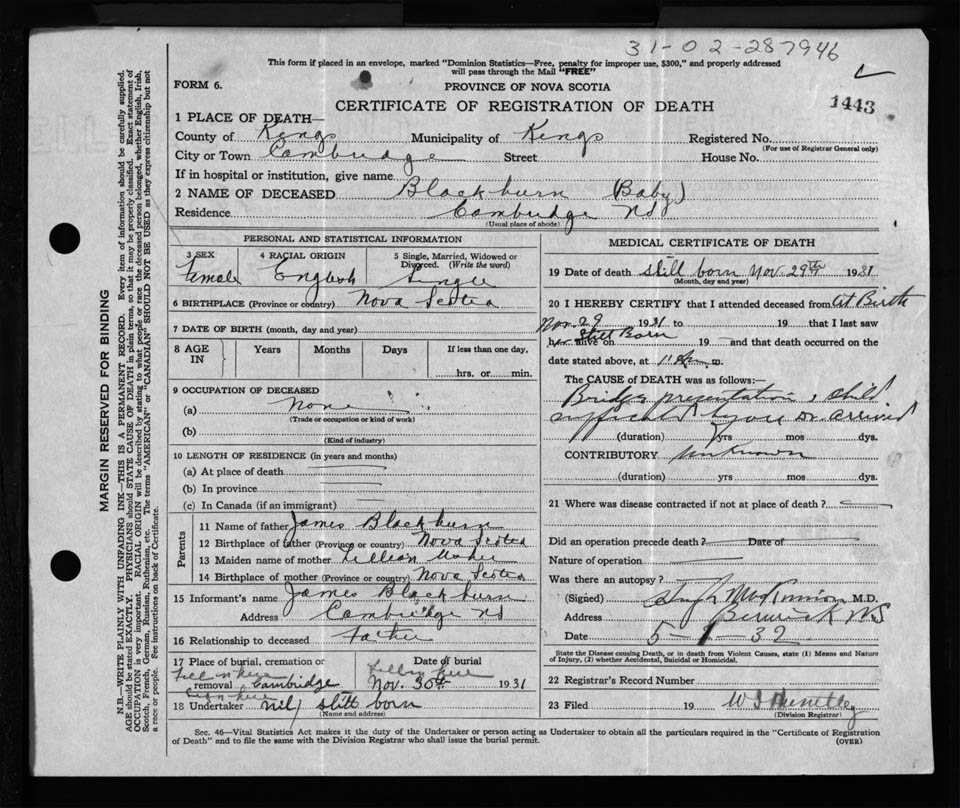 31-02-287946
This form if placed in an envelope, marked "Dominion Statistics—Free, penalty for improper use, $300," and properly addressed
will pass through the Mail "FREE"
FORM 6.
PROVINCE OF NOVA SCOTIA
1443
CERTIFICATE OF REGISTRATION OF DEATH
1 PLACE OF DEATH—
County of Kings Municipality of Kings Registered No.
(For use of Registrar General only)
City or Town Cambridge Street House No.
If in hospital or institution, give name
2 NAME OF DECEASED Blackburn (Baby)
Residence Cambridge NS
(Usual place of abode)
PERSONAL AND STATISTICAL INFORMATION
3 SEX 4 RACIAL ORIGIN 5 Single, Married, Widowed or
Divorced. (Write the word)
Female English Single
6 BIRTHPLACE (Province or country) Nova Scotia
7 DATE OF BIRTH (month, day and year)
8 AGE IN Years Months Days If less than one day,
hrs. or min.
9 OCCUPATION OF DECEASED
(a) None
(Trade or occupation or kind of work)
(b)
(Kind of industry)
10 LENGTH OF RESIDENCE (in years and months)
(a) At place of death
(b) In province
(c) In Canada (if an immigrant)
Parents
11 Name of father James Blackburn
12 Birthplace of father (Province or country) Nova Scotia
13 Maiden name of mother Lillian
14 Birthplace of mother (Province or country) Nova Scotia
15 Informant's name James Blackburn
Address Cambridge NS
16 Relationship to deceased Father
17 Place of burial, cremation or Date of burial
Fill in here Fill in here
removal Cambridge Nov. 30th 1931
Sign here
18 Undertaker nil, still born
(Name and address)
MEDICAL CERTIFICATE OF DEATH
19 Date of death still born Nov. 29th 1931
(Month, day and year)
20 I HEREBY CERTIFY that I attended deceased from at Birth
Nov. 29 1931 to 19 that I last saw
h alive on Still Born 19 and that death occurred on the
date stated above, at 11 m.
The CAUSE of DEATH was as follows:—
presentation, child
suffocated before Dr arrived
(duration) yrs mos dys.
CONTRIBUTORY Unknown
(duration) yrs mos dys.
21 Where was disease contracted if not at place of death?
Did an operation precede death? Date of
Nature of operation
Was there an autopsy?
(Signed) Hugh McKinnon M.D.
Address Berwick NS
Date 5-1-32
State the Disease causing Death, or in death from Violent Causes, state (1) Means and
Nature of Injury, (2) whether Accidental, Suicidal or Homicidal.
22 Registrar's Record Number
23 Filed 19 Huntley
(Division Registrar)
Sec. 46—Vital Statistics Act makes it the duty of the Undertaker or person acting as Undertaker to obtain all the particulars required in the "Certificate of Registration
of Death" and to file the same with the Division Registrar who shall issue the burial permit.
(OVER)
MARGIN RESERVED FOR BINDING
N.B.—WRITE PLAINLY WITH UNFADING INK—THIS IS A PERMANENT RECORD. Every item of information should be carefully supplied.
AGE should be stated EXACTLY. PHYSICIANS should STATE CAUSE OF DEATH in plain terms, so that it may be properly classified. Exact statement of
OCCUPATION is very important. RACIAL ORIGIN will be described by stating to what people or race the deceased person belonged, whether English, Irish,
Scotch, French, German, Russian, Ruthenian, etc. The terms "AMERICAN" or "CANADIAN" SHOULD NOT BE USED as they express citizenship but not
a race or people. See instructions on back of Certificate.